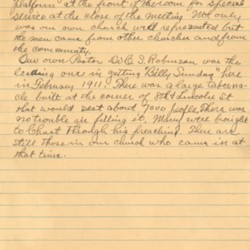 platform" at the front of the room for special
service at the close of the meeting. Not only
was our own church well represented but
the men came from other churches and from
the community.
Our own Pastor Dr E S Robinson was the
leading one in getting "Billy Sunday" here
in February 1911. There was a large taberna-
cle built at the corner of 8th & Lincoln St
that would seat about 7000 people, there was
no trouble in filling it. Many were brought
to Christ through his preaching. There are
still those in our church who came in at
that time.